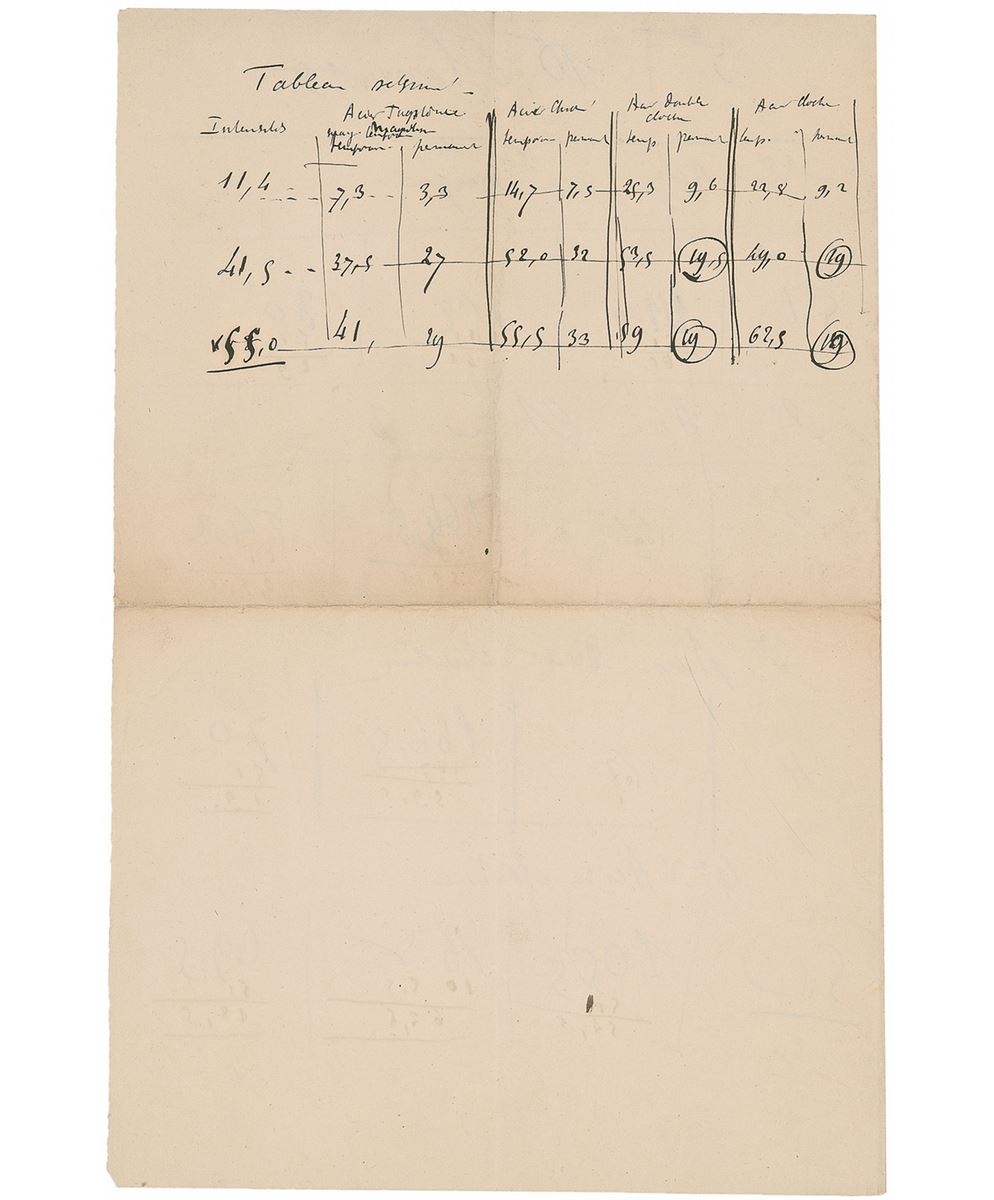 Tableau résumé
Intensités Acier Tungstène Acier Chromé Acier double cloche Acier cloche
temporaire permanent temporaire permanent temp permanent temp. permanent
11,4 7,3 3,3 14,7 7,5 25,3 9,6 22,8 9,2
41,5 37,5 27 52,0 32 53,5 19,5 49,0 19
55,0 41, 29 55,5 33 59 19 62,5 19